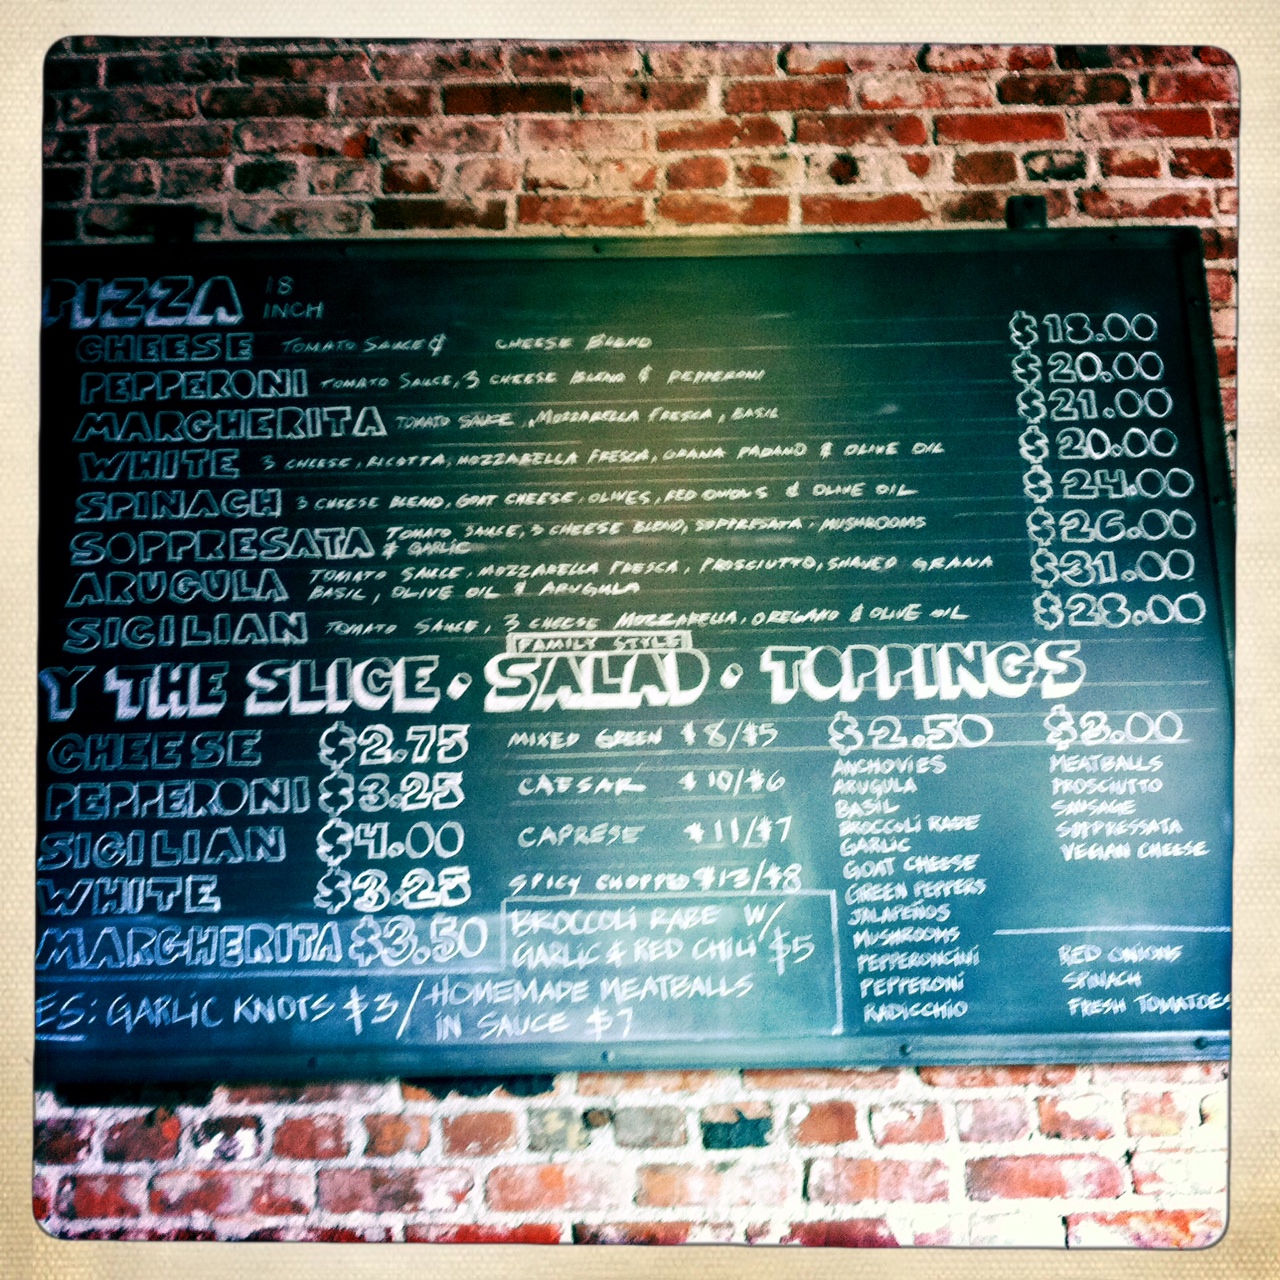 PIZZA 18 INCH
CHEESE TOMATO SAUCE & CHEESE BLEND $18.00
PEPPERONI TOMATO SAUCE, 3 CHEESE BLEND & PEPPERONI $20.00
MARGHERITA TOMATO SAUCE, MOZZARELLA FRESCA, BASIL $21.00
WHITE 3 CHEESE, RICOTTA, MOZZARELLA FRESCA, GRANA PADANO & OLIVE OIL $20.00
SPINACH 3 CHEESE BLEND, GOAT CHEESE, OLIVES, RED ONIONS & OLIVE OIL $24.00
SOPPRESATA TOMATO SAUCE, 3 CHEESE BLEND, SOPPRESATA, MUSHROOMS $26.00
& GARLIC
ARUGULA TOMATO SAUCE, MOZZARELLA FRESCA, PROSCIUTTO, SHAVED GRANA $31.00
BASIL, OLIVE OIL & ARUGULA
SICILIAN TOMATO SAUCE, 3 CHEESE MOZZARELLA, OREGANO & OLIVE OIL $28.00
FAMILY STYLE
Y THE SLICE • SALAD • TOPPINGS
CHEESE $2.75
PEPPERONI $3.25
SICILIAN $4.00
WHITE $3.25
MARGHERITA $3.50
MIXED GREEN $8/$5
CAESAR $10/$6
CAPRESE $11/$7
SPICY CHOPPED $13/$8
BROCCOLI RABE W/
GARLIC & RED CHILI $5
ES: GARLIC KNOTS $3/ HOMEMADE MEATBALLS
IN SAUCE $7
$2.50
ANCHOVIES
ARUGULA
BASIL
BROCCOLI RABE
GARLIC
GOAT CHEESE
GREEN PEPPERS
JALAPEÑOS
MUSHROOMS
PEPPERONCINI
PEPPERONI
RADICCHIO
$3.00
MEATBALLS
PROSCIUTTO
SAUSAGE
SOPPRESSATA
VEGAN CHEESE
RED ONIONS
SPINACH
FRESH TOMATOES